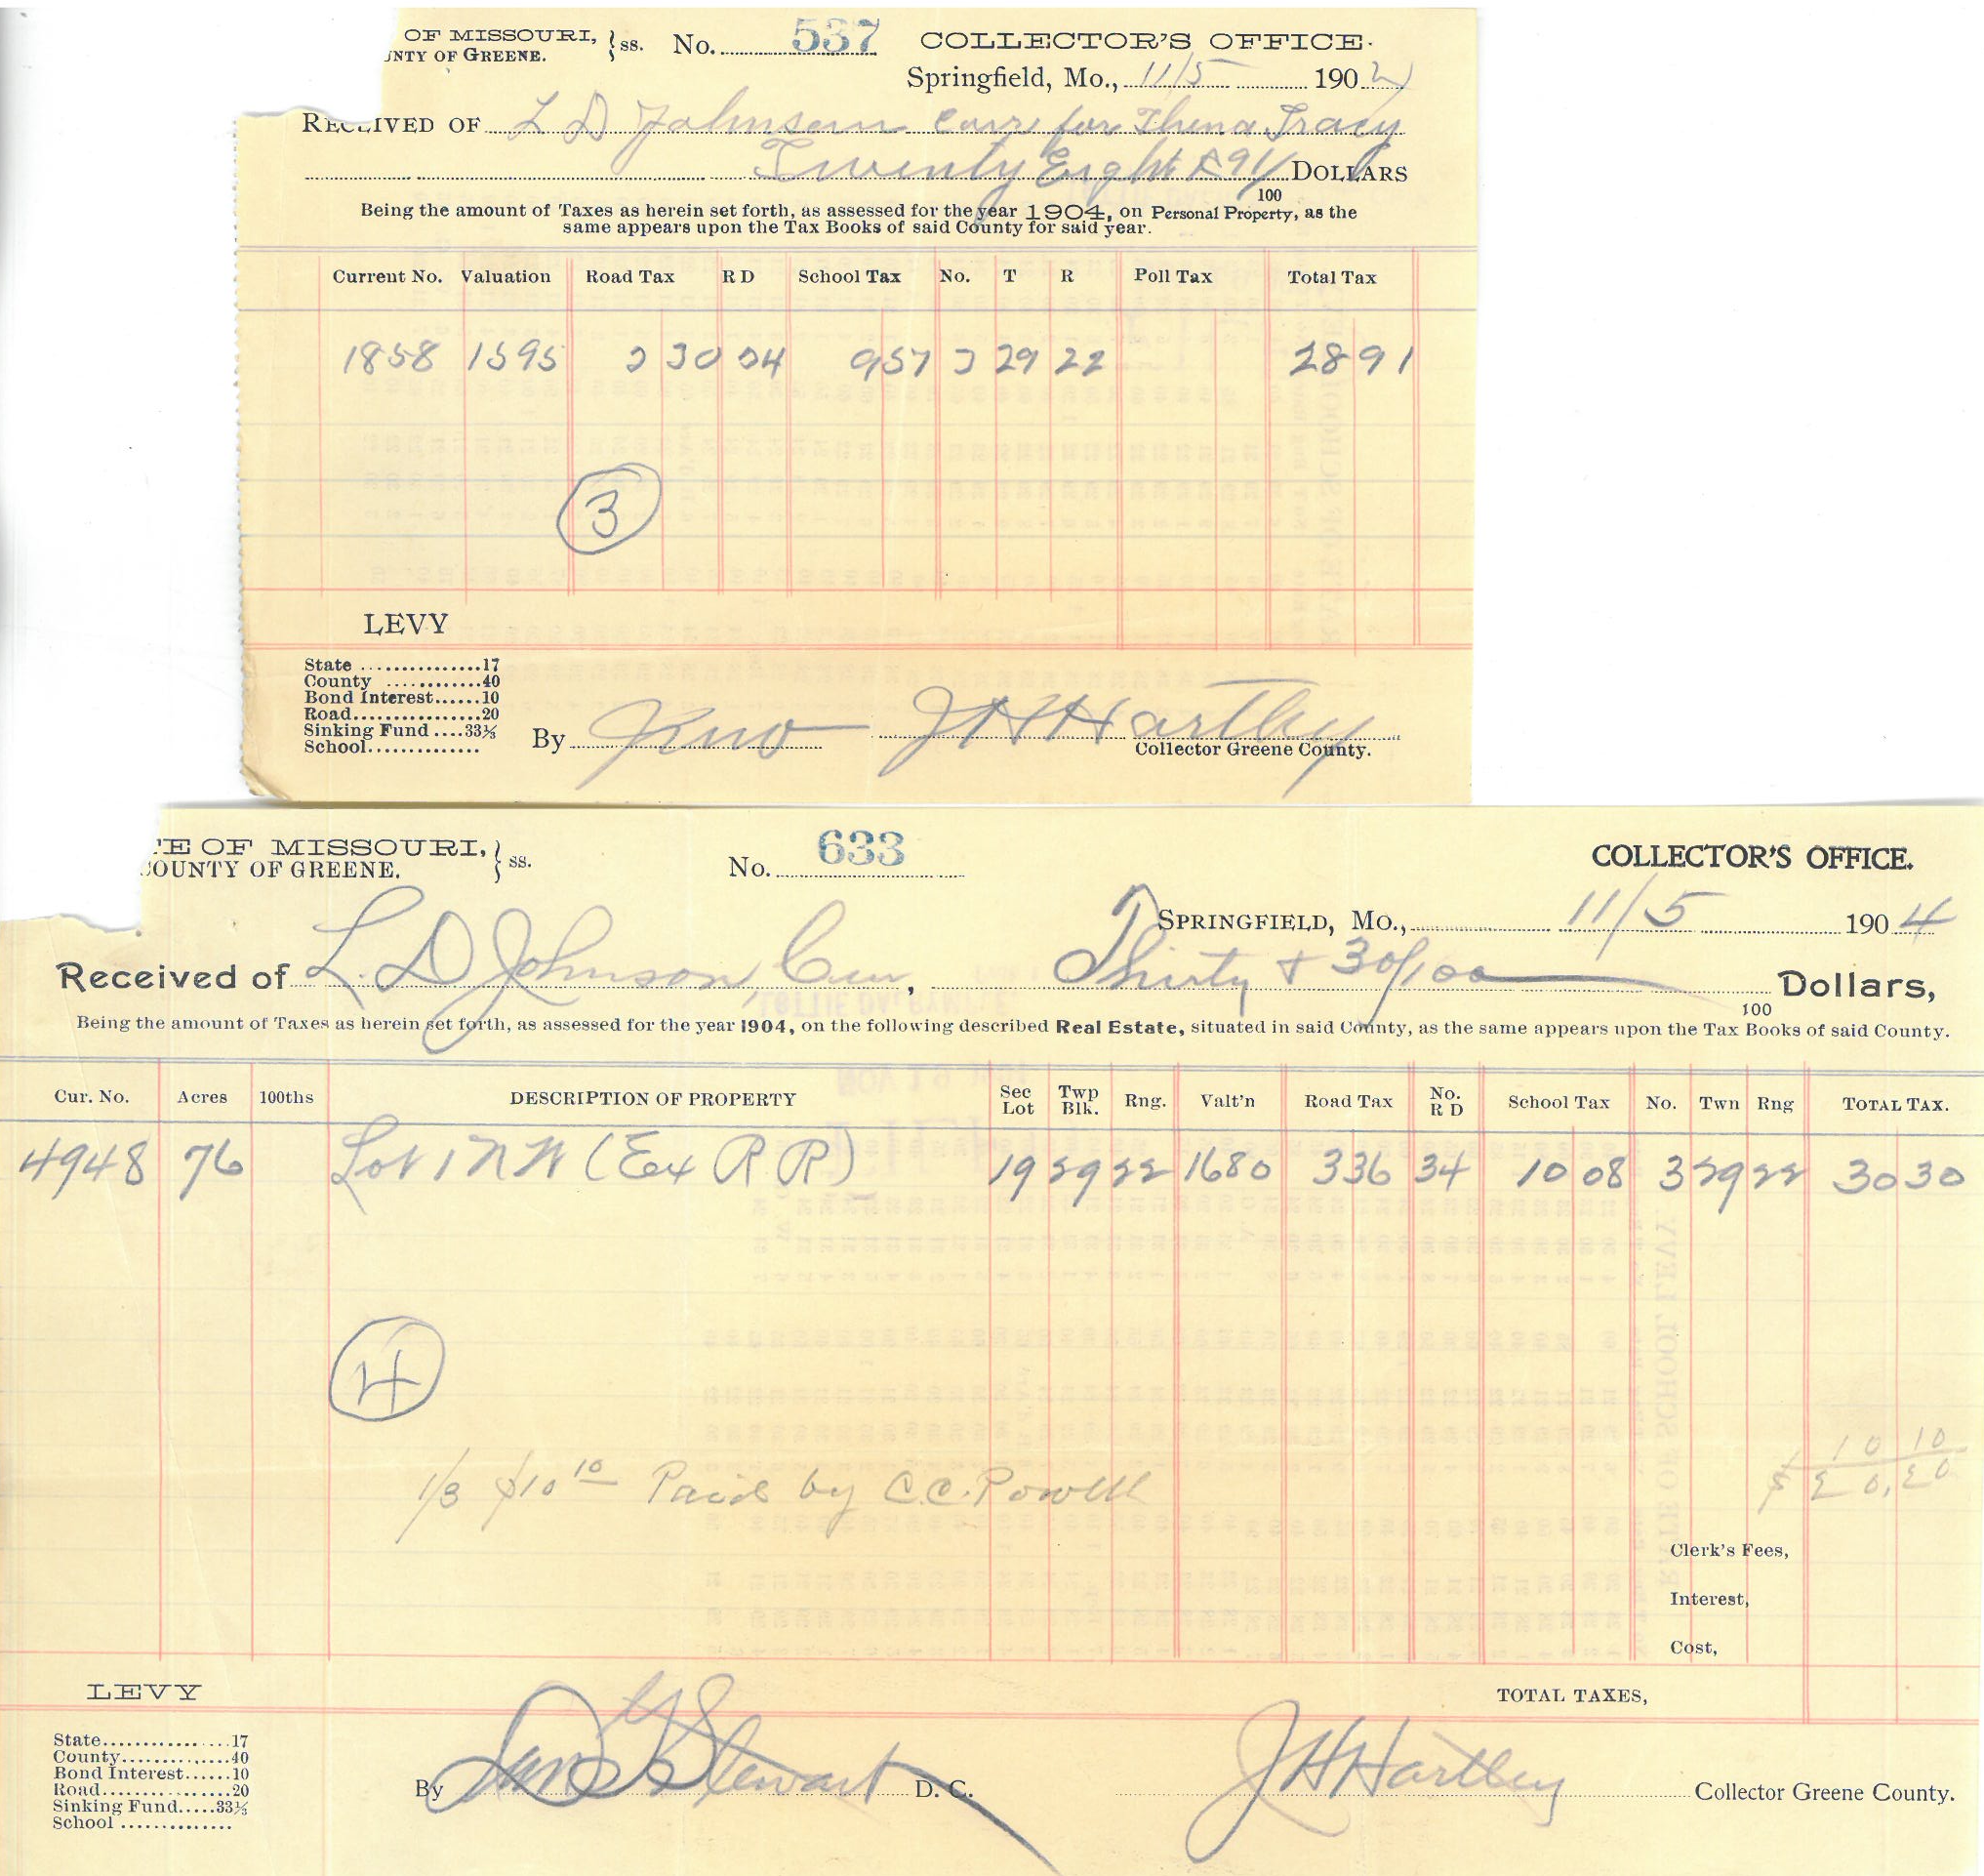 OF MISSOURI, } ss. No. 537 COLLECTOR'S OFFICE.
UNTY OF GREENE.
Springfield, Mo., 11/5 190
RECEIVED OF L D Johnson for Thena Tracy
Twenty Eight & 91/100 DOLLARS
Being the amount of Taxes as herein set forth, as assessed for the year 1904, on Personal Property, as the
same appears upon the Tax Books of said County for said year.
Current No. Valuation Road Tax R D School Tax No. T R Poll Tax Total Tax
1858 1595 3 30 34 957 3 29 22 28 91
3
LEVY
State ...............17
County ............40
Bond Interest......10
Road................20
Sinking Fund ....33⅓
School..............
By J H Hartley
Collector Greene County.
TE OF MISSOURI, } ss. No. 633 COLLECTOR'S OFFICE.
COUNTY OF GREENE.
SPRINGFIELD, MO., 11/5 1904
Received of L. D Johnson, Cur, Thirty & 30/100 Dollars,
100
Being the amount of Taxes as herein set forth, as assessed for the year 1904, on the following described Real Estate, situated in said County, as the same appears upon the Tax Books of said County.
Cur. No. Acres 100ths DESCRIPTION OF PROPERTY Sec Lot Twp Blk. Rng. Valt'n Road Tax No. R D School Tax No. Twn Rng TOTAL TAX.
4948 76 Lot 1 N W (Ex R R) 19 29 22 1680 3 36 34 10 08 3 29 22 30 30
4
10 10
1/3 $10 10 Paid by C.C. Powell $ 20,20
Clerk's Fees,
Interest,
Cost,
LEVY TOTAL TAXES,
State...............17
County............40
Bond Interest......10
Road................20
Sinking Fund.....33⅓
School ..............
By Stewart D. C. J H Hartley Collector Greene County.